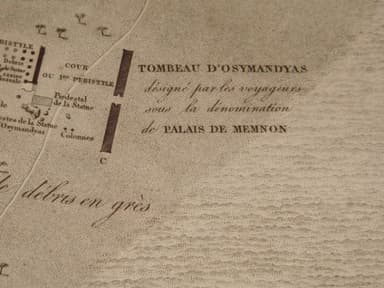 PERISTYLE
Débris
COUR
OU 1er. PERISTYLE
TOMBEAU D'OSYMANDYAS
désigné par les voyageurs
sous la dénomination
de PALAIS DE MEMNON
Piédestal
de la Statue
de la Statue
d'Osymandyas
Colonnes
C
de débris en grès